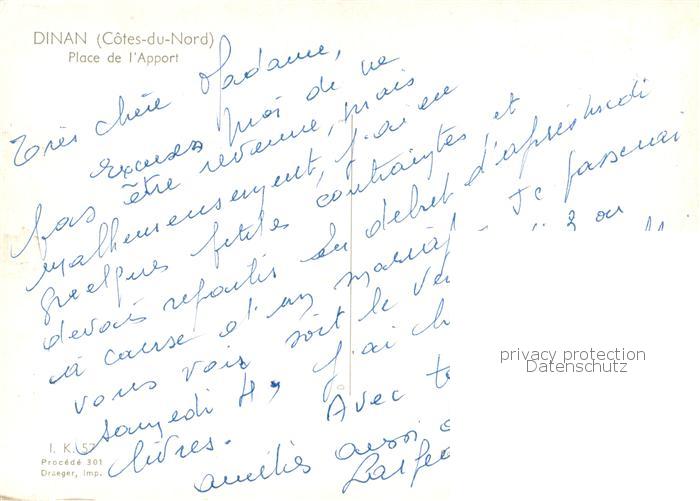 DINAN (Côtes-du-Nord)
Place de l'Apport
Très chère Madame,
Excusez moi de ne
pas être revenue, mais
malheureusement, j'ai eu
quelques petites contraintes, et
devais repartir en début d'après midi
à cause d'un mariage. Je passerai
vous voir soit le ven 3 ou
samedi 4, j'ai
livres. Avec
amitiés aussi
I. K. 57
Procédé 301
Draeger, Imp.
privacy protection
Datenschutz